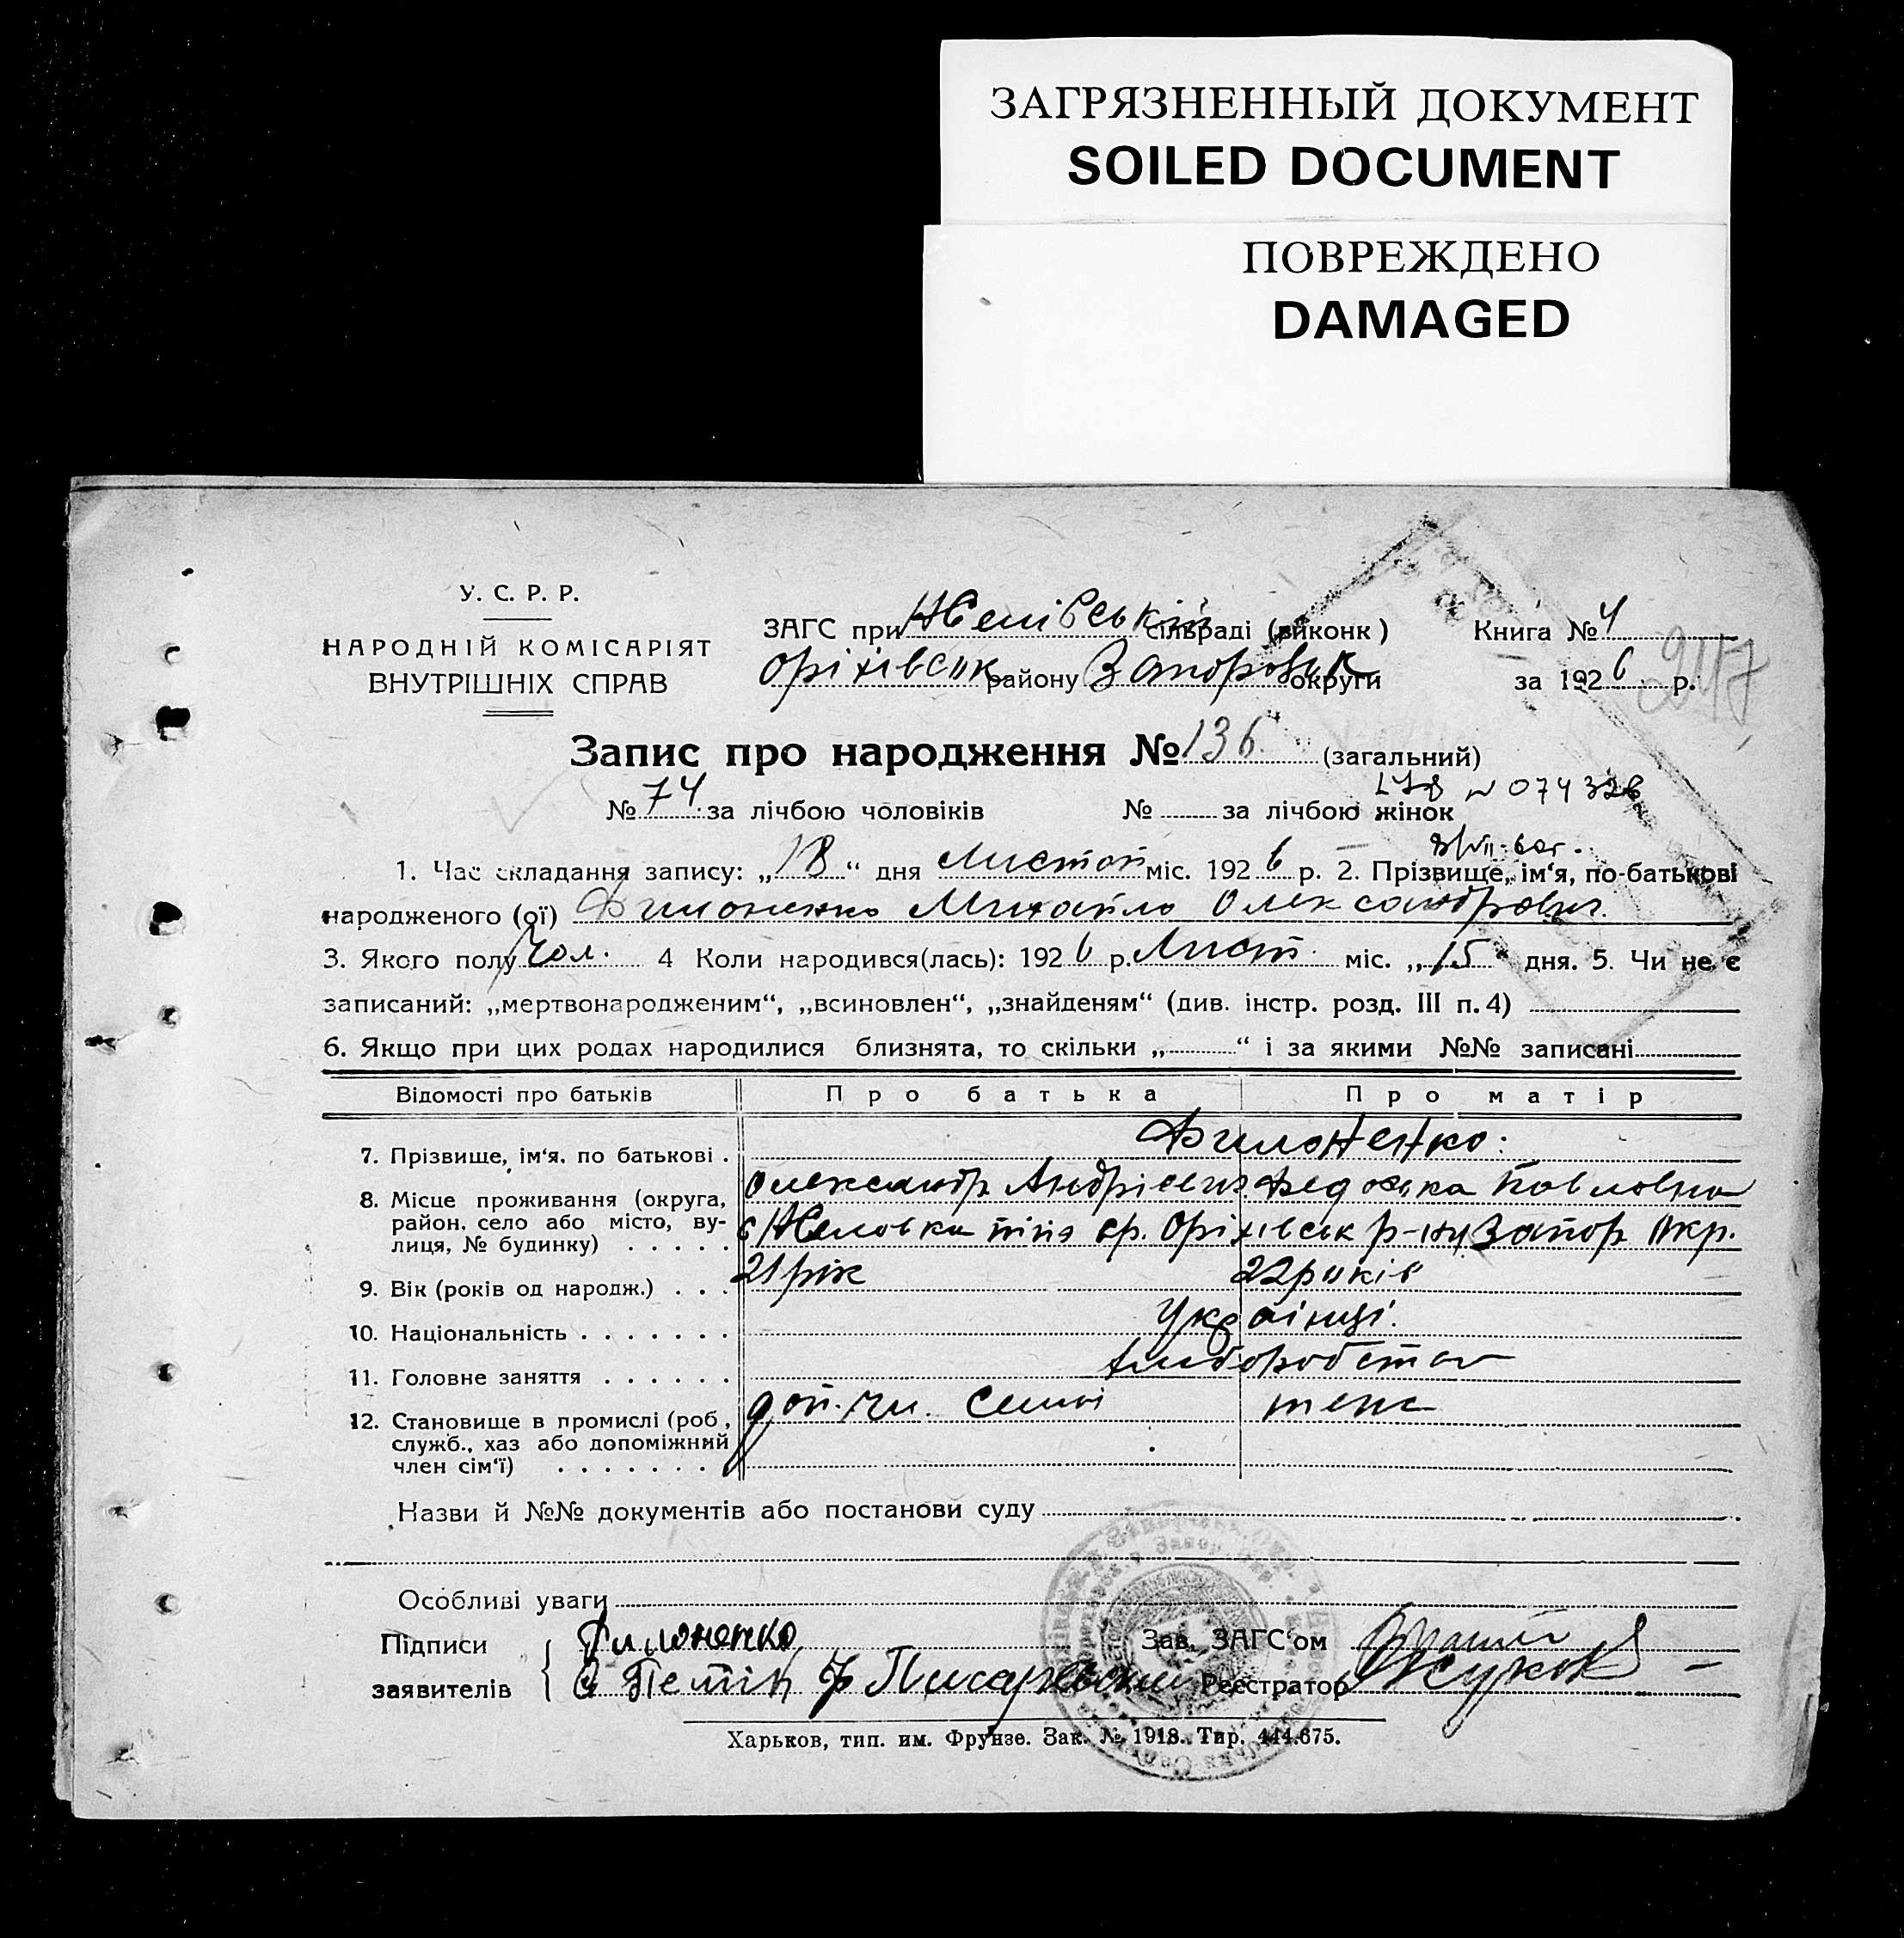 ЗАГРЯЗНЕННЫЙ ДОКУМЕНТ
SOILED DOCUMENT
ПОВРЕЖДЕНО
DAMAGED
У. С. Р. Р.
НАРОДНІЙ КОМІСАРІЯТ
ВНУТРІШНІХ СПРАВ
ЗАГС при сільраді (виконк) Книга № 4
Оріхівськ району Запоровськ округи за 1926 р.
Запис про народження № 136 (загальний)
№ 74 за лічбою чоловіків № за лічбою жінок
№ 074326
1. Час складання запису: „18“ дня Листоп міс. 1926 р. 2. Прізвище, ім‘я, по-батькові
народженого (ої) Филоненко Михайло Олександрович.
3. Якого полу Чол. 4 Коли народився(лась): 1926 р. Лист. міс. „15“ дня. 5. Чи не є
записаний: „мертвонародженим“, „всиновлен“, „знайденям“ (див. інстр. розд. III п. 4)
6. Якщо при цих родах народилися близнята, то скільки „ “ і за якими №№ записані
Відомості про батьків Про батька Про матір
7. Прізвище, ім‘я. по батькові . Филоненко:
Олександр Андрієвич Федоська Павловна
8. Місце проживання (округа,
район. село або місто, ву-
лиця, № будинку) . . . . . с Оріхівськ р-ну Запор Окр.
9. Вік (років од народж.) . . . 21 рік 22 років
10. Національність . . . . . . . Українці.
11. Головне заняття . . . . . .
12. Становище в промислі (роб, доп. чл. семьі теж
служб., хаз або допоміжний
член сім‘ї) . . . . . . .
Назви й №№ документів або постанови суду
Особливі уваги
Підписи Филоненко Зав. ЗАГС‘ом
заявителів Реєстратор
Харьков, тип. им. Фрунзе. Зак. № 1918. Тир. 444.675.